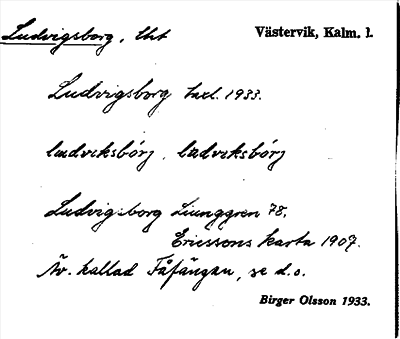 Ludvigsborg, lht Västervik, Kalm. l.
Ludvigsborg txl. 1933.
ludviksbórj, ludviksbórj
Ludvigsborg Ljunggren 78.
Ericssons karta 1907.
Äv. kallad Fåfängan, se d.o.
Birger Olsson 1933.